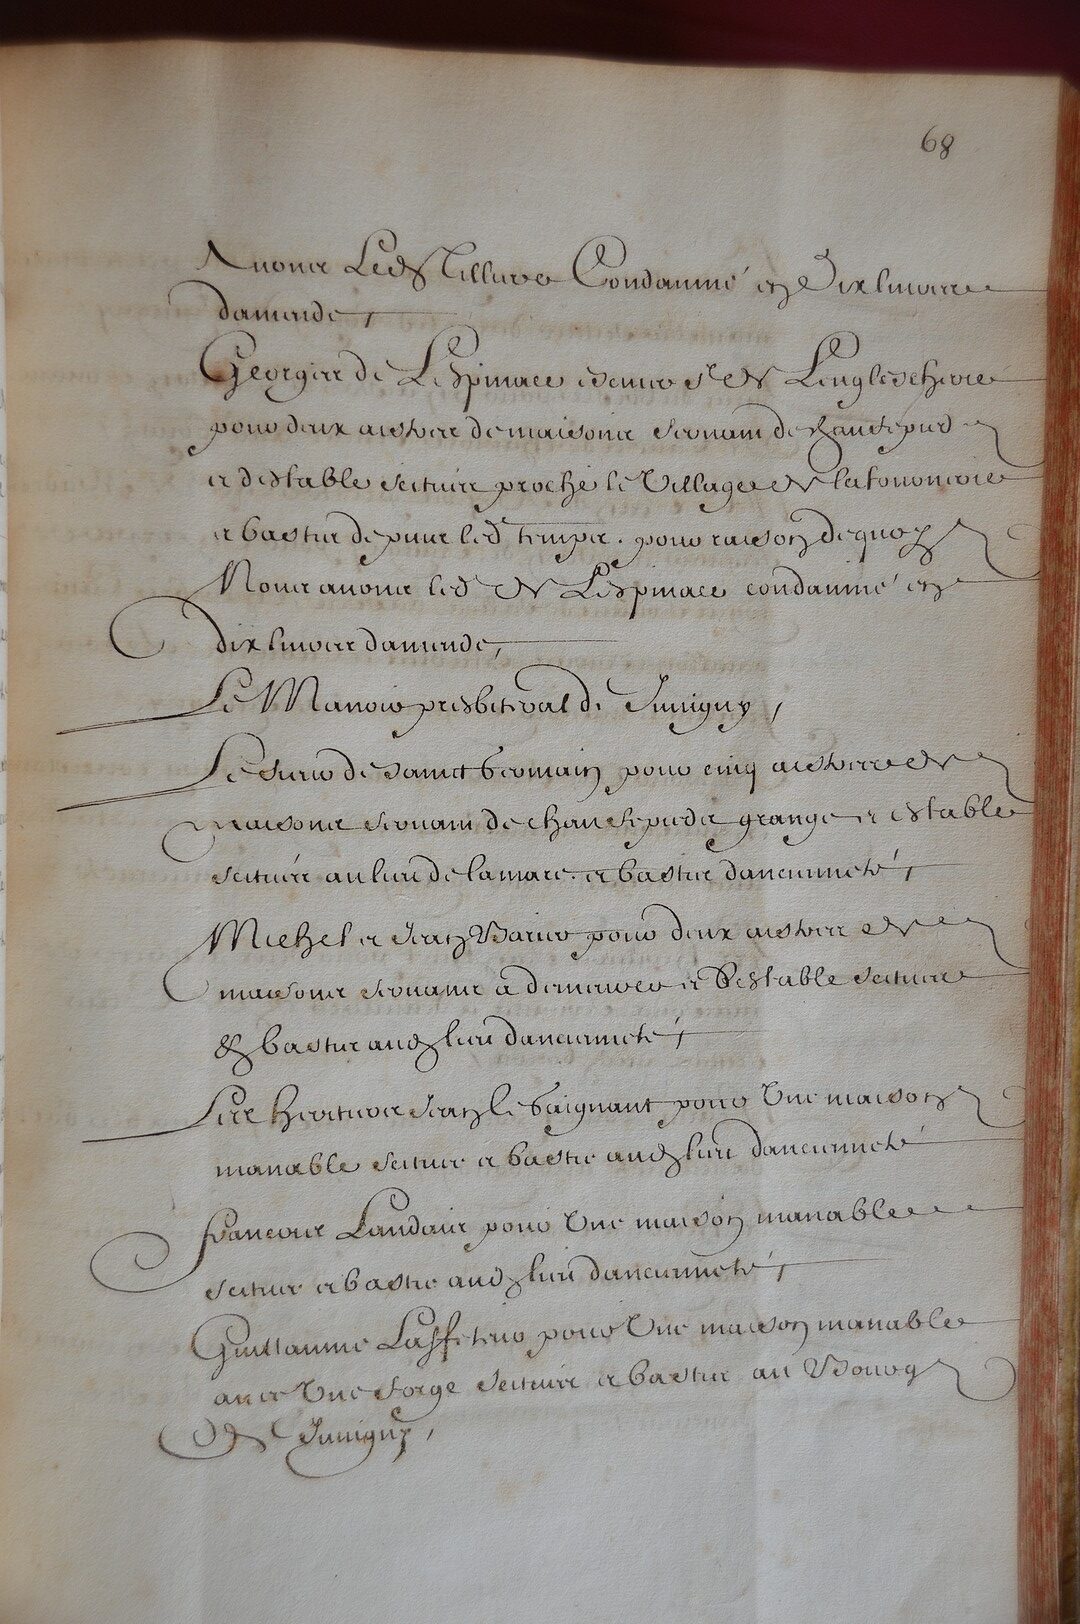 68
Auons Led Tilluer Condamné en Dix liures
damende,
Georges de Lespinace escuier sr de Lenglescherie
pour deux aistres de maisons seruant de chaufepied
et destable scituée proche le Village de la
et bastie depuis led temps. pour raison de quoy
Nous auons led de Lespinace condamné en
dix liures damende,
Le Manoir presbiteral de Juuigny,
Le sieur de sainct Germain pour cinq aistres de
maisons seruant de chaufepieds grange et estable
scituée au lieu de la mare et bastie dancienneté,
Michel et Jean pour deux aistres de
maisons seruans a demeurer et Destable scituée
& bastie aud lieu dancienneté,
Les heritiers Jean le Gaignant pour Une maison
manable scituée et bastie aud lieu dancienneté
francois Landais pour Une maison manable
scituée et bastie aud lieu dancienneté,
Guillaume pour Une maison manable
auec Une forge scituée et bastie au Bourg
de Juuigny,